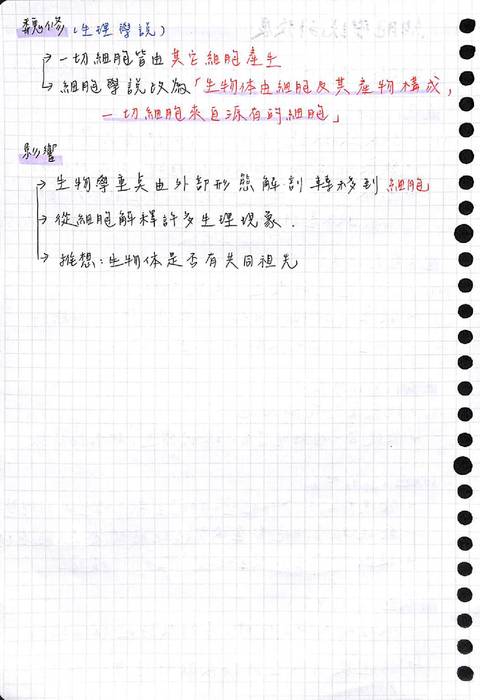 魏修(生理學說)
→ 一切細胞皆由其它細胞產生
→ 細胞學說改為「生物体由細胞及其產物構成,
一切細胞來自源有的細胞」
影響
→ 生物學重点由外部形態解剖轉移到 細胞
→ 從細胞解釋許多生理現象.
→ 推想:生物体是否有共同祖先